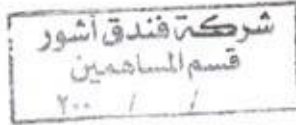 شركة فندق آشور
قسم المساهمين
/ / ٢٠٠